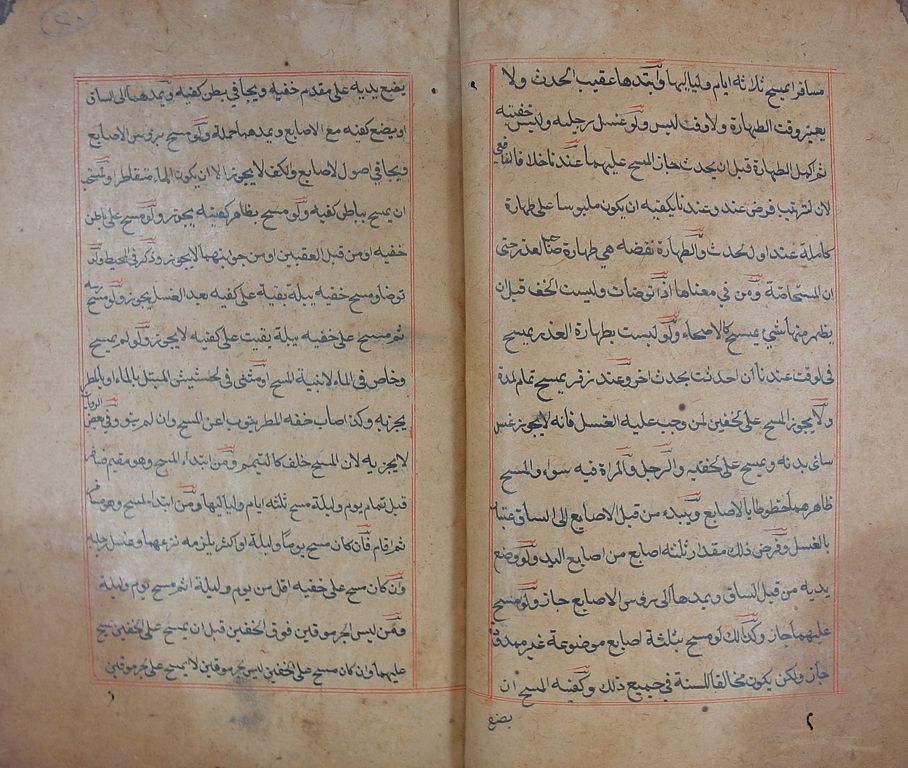 مسافرا يمسح ثلاثة ايام ولياليها وابتدها عقيب الحدث ولا
يعتبر وقت الطهارة ولا وقت لبس ولو غسل رجليه ولبس خفيه
ثم اكمل الطهارة قبل ان يحدث جاز المسح عليهما عندنا خلافا للشافعي
لان الترتيب فرض عنده وعندنا يكفيه ان يكون ملبوسا على طهارة
كاملة عند اول الحدث والطهارة هي طهارة صاحب العذر حتى
ان المستحاضة ومن في معناها اذا توضأت ولبست الخف قبل ان
يظهر منها شيئ يمسح كالاصحاء ولو لبست بطهارة العذر يمسح
في الوقت عندنا ان احدثت بحدث اخر وعند زفر يمسح تمام المدة
ولا يجوز المسح على الخفين لمن وجب عليه الغسل فانه لا يجوز غسل
سائر بدنه ويمسح على خفيه والرجل والمرأة فيه سواء والمسح
ظاهرهما خطوطا بالاصابع ويبدء من قبل الاصابع الى الساق
بالغسل وفرض ذلك مقدار ثلثة اصابع من اصابع اليد ولو وضع
يديه من قبل الساق ويمدها الى رؤس الاصابع جاز ولو مسح
عليهما جاز وكذلك لو مسح بثلثة اصابع موضوعة غير ممدودة
جاز ولكن يكون مخالفا للسنة في جميع ذلك وكيفية المسح ان
يضع
يضع يديه على مقدم خفيه ويجافي بطن كفيه ويمدهما الى الساق
او يضع كفيه مع الاصابع ويمدهما جملة ولو مسح برؤس الاصابع
ويجافي اصول الاصابع والكف لا يجوز الا ان يكون الماء متقاطرا
ان يمسح بباطن كفيه ولو مسح بظاهر كفيه يجوز ولو مسح على باطن
خفيه او من قبل العقبين او من جوانبهما لا يجوز وذكر في المحيط ولو
توضا ومسح خفيه ببلة بقية على كفيه بعد الغسل يجوز ولو مسح
ثم مسح على خفيه ببلة بقيت على كفيه لا يجوز ولو لم يمسح
وخاض في الماء لا بنية المسح او مشى في الحشيش المبتل بالماء او المطر
يجزيه وكذا اصاب خفه المطر ينوب عن المسح وان لم ينو وفي بعض
لا يجزيه لان المسح خلف كالتيمم ومن ابتداء المسح وهو مقيم
قبل تمام يوم وليلة مسح ثلثة ايام ولياليها ومن ابتداء المسح وهو مسافر
ثم اقام فان كان مسح يوما وليلة او اكثر يلزمه نزعهما وغسل رجليه
وان كان مسح على خفيه اقل من يوم وليلة اتم مسح يوم وليلة
ومن لبس الجرموقين فوق الخفين قبل ان يمسح على الخفين مسح
عليهما وان كان مسح على الخفين لبس جرموقين لا يمسح على جرموقين